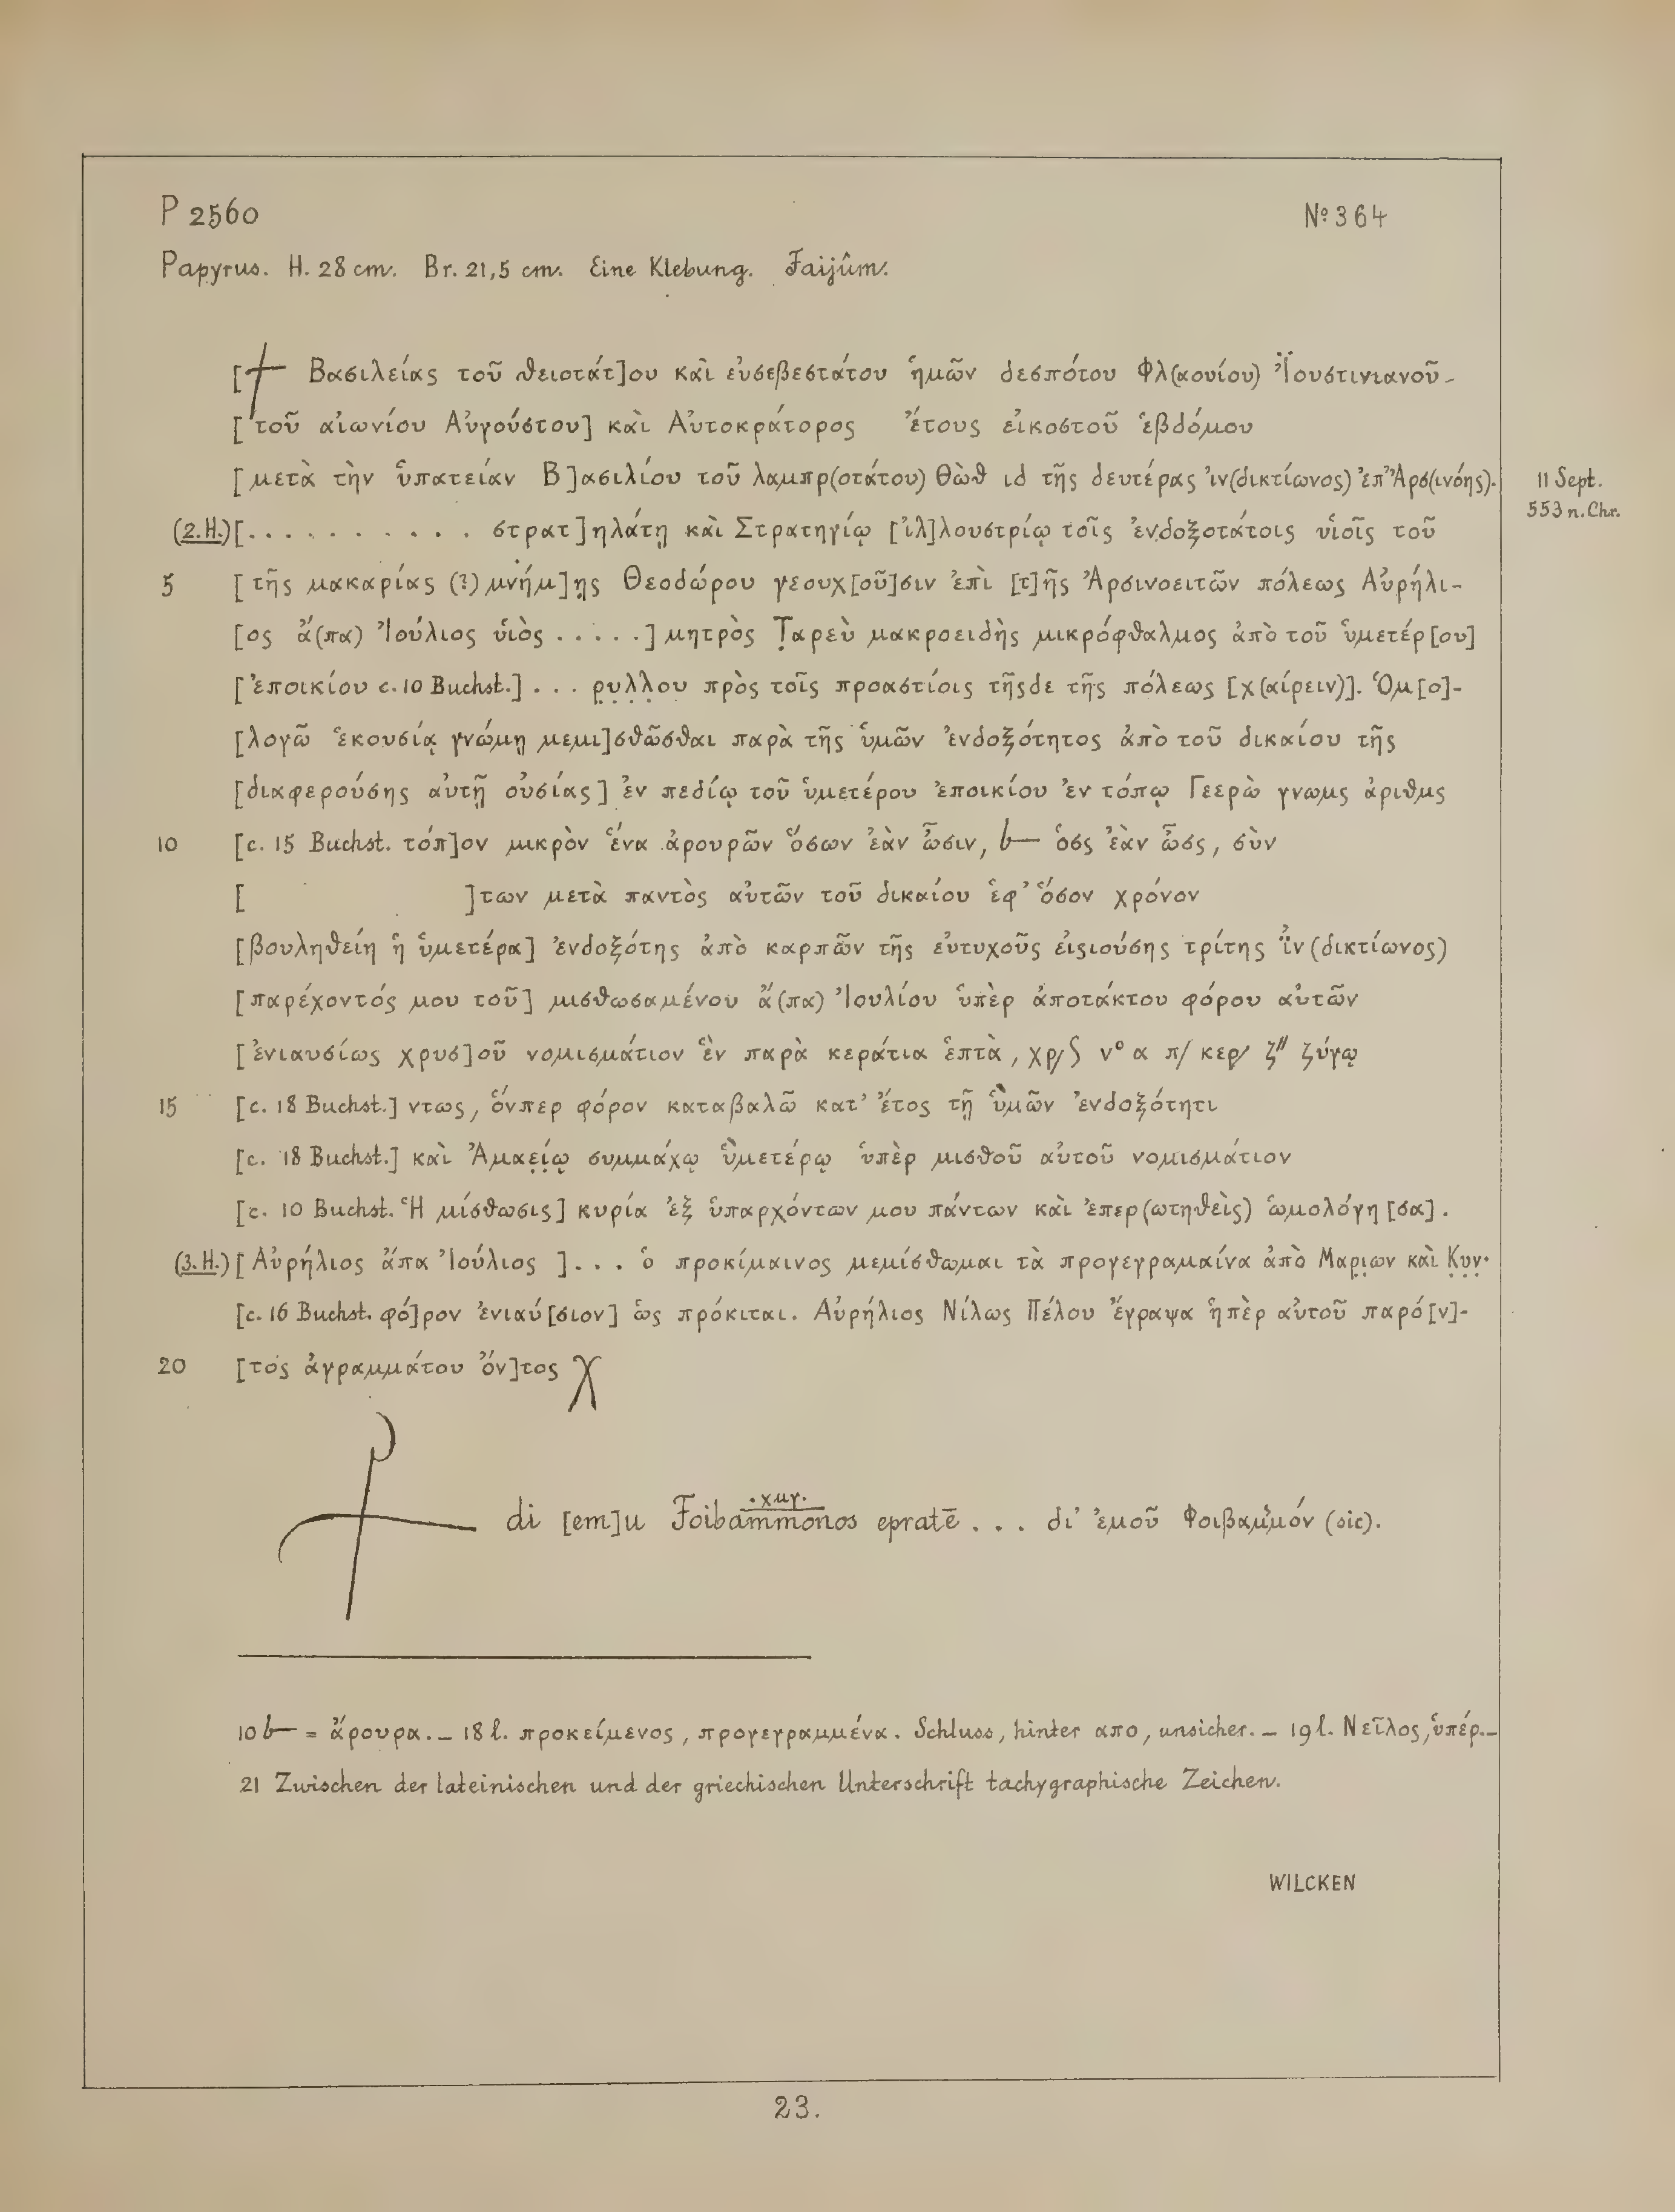 P 2560 Nº 364
Papyrus. H. 28 cm. Br. 21,5 cm. Eine Klebung. Faijûm.
[† Βασιλείας τοῦ θειοτάτ]ου καὶ εὐσεβεστάτου ἡμῶν δεσπότου Φλ(αουίου) Ἰ̈ουστινιανοῦ-
[τοῦ αἰωνίου Αὐγούστου] καὶ Αὐτοκράτορος ἔτους εἰκοστοῦ ἑβδόμου
[μετὰ τὴν ὑπατείαν Β]ασιλίου τοῦ λαμπρ(οτάτου) Θὼθ ιδ τῆς δευτέρας ἰν(δικτίωνος) ἐπ' Ἀρσ(ινόης). 11 Sept.
553 n. Chr.
(2. H.) [. . . . . . . . . . . στρατ]ηλάτῃ καὶ Στρατηγίῳ [ἰλ]λουστρίῳ τοῖς ἐνδοξοτάτοις υἱοῖς τοῦ
5 [τῆς μακαρίας (?) μνήμ]ης Θεοδώρου γεουχ[οῦ]σιν ἐπὶ [τ]ῆς Ἀρσινοειτῶν πόλεως Αὐρήλι-
[ος ἄ(πα) Ἰούλιος υἱὸς . . . . .] μητρὸς Τ̣αρεὺ μακροειδὴς μικρόφθαλμος ἀπὸ τοῦ ὑμετέρ[ου]
[ἐποικίου c. 10 Buchst.] . . . ρ̣υ̣λ̣λ̣ου πρὸς τοῖς προαστίοις τῆσδε τῆς πόλεως [χ(αίρειν)]. Ὁμ[ο]-
[λογῶ ἑκουσίᾳ γνώμῃ μεμι]σθῶσθαι παρὰ τῆς ὑμῶν ἐνδοξότητος ἀπὸ τοῦ δικαίου τῆς
[διαφερούσης αὐτῇ οὐσίας] ἐν πεδίῳ τοῦ ὑμετέρου ἐποικίου ἐν τόπῳ Γεερὼ γνωμς ἀριθμς
10 [c. 15 Buchst. τόπ]ον μικρὸν ἕνα ἀρουρῶν ὅσων ἐὰν ὦσιν, b— ὁσς ἐὰν ὦσς, σὺν
[ ]των μετὰ παντὸς αὐτῶν τοῦ δικαίου ἐφ' ὅσον χρόνον
[βουληθείη ἡ ὑμετέρα] ἐνδοξότης ἀπὸ καρπῶν τῆς εὐτυχοῦς εἰσιούσης τρίτης ἰ̈ν(δικτίωνος)
[παρέχοντός μου τοῦ] μισθωσαμένου ἄ(πα) Ἰουλίου ὑπὲρ ἀποτάκτου φόρου αὐτῶν
[ἐνιαυσίως χρυσ]οῦ νομισμάτιον ἓν παρὰ κεράτια ἑπτὰ, χρ/ S νº α π/ κερ/ ζ" ζύγῳ
15 [c. 18 Buchst.] ντως, ὅνπερ φόρον καταβαλῶ κατ' ἔτος τῇ ὑ̈μῶν ἐνδοξότητι
[c. 18 Buchst.] καὶ Ἀμαε̣ί̣ῳ συμμάχῳ ὑ̈μετέρῳ ὑπὲρ μισθοῦ αὐτοῦ νομισμάτιον
[c. 10 Buchst. Ἡ μίσθωσις] κυρία ἐξ ὑπαρχόντων μου πάντων καὶ ἐπερ(ωτηθεὶς) ὡμολόγη[σα].
(3. H.) [Αὐρήλιος ἄπα Ἰούλιος ] . . . ὁ προκίμαινος μεμίσθωμαι τὰ προγεγραμαίνα ἀπὸ Μαρ̣ι̣ων καὶ Κ̣υ̣ν̣.
[c. 16 Buchst. φό]ρον ἐνιαύ[σιον] ὡς πρόκιται. Αὐρήλιος Νίλως Πέλου ἔγραψα ἡπὲρ αὐτοῦ παρό[ν]-
20 [τος ἀγραμμάτου ὄν]τος χ
di [em]u Foibammonos epratē . . . δι' ἐμοῦ Φοιβαμμόν (sic).
·χμγ·
10 b— = ἄρουρα. – 18 l. προκείμενος, προγεγραμμένα. Schluss, hinter απο, unsicher. – 19 l. Νεῖλος, ὑπέρ. –
21 Zwischen der lateinischen und der griechischen Unterschrift tachygraphische Zeichen.
WILCKEN
23.